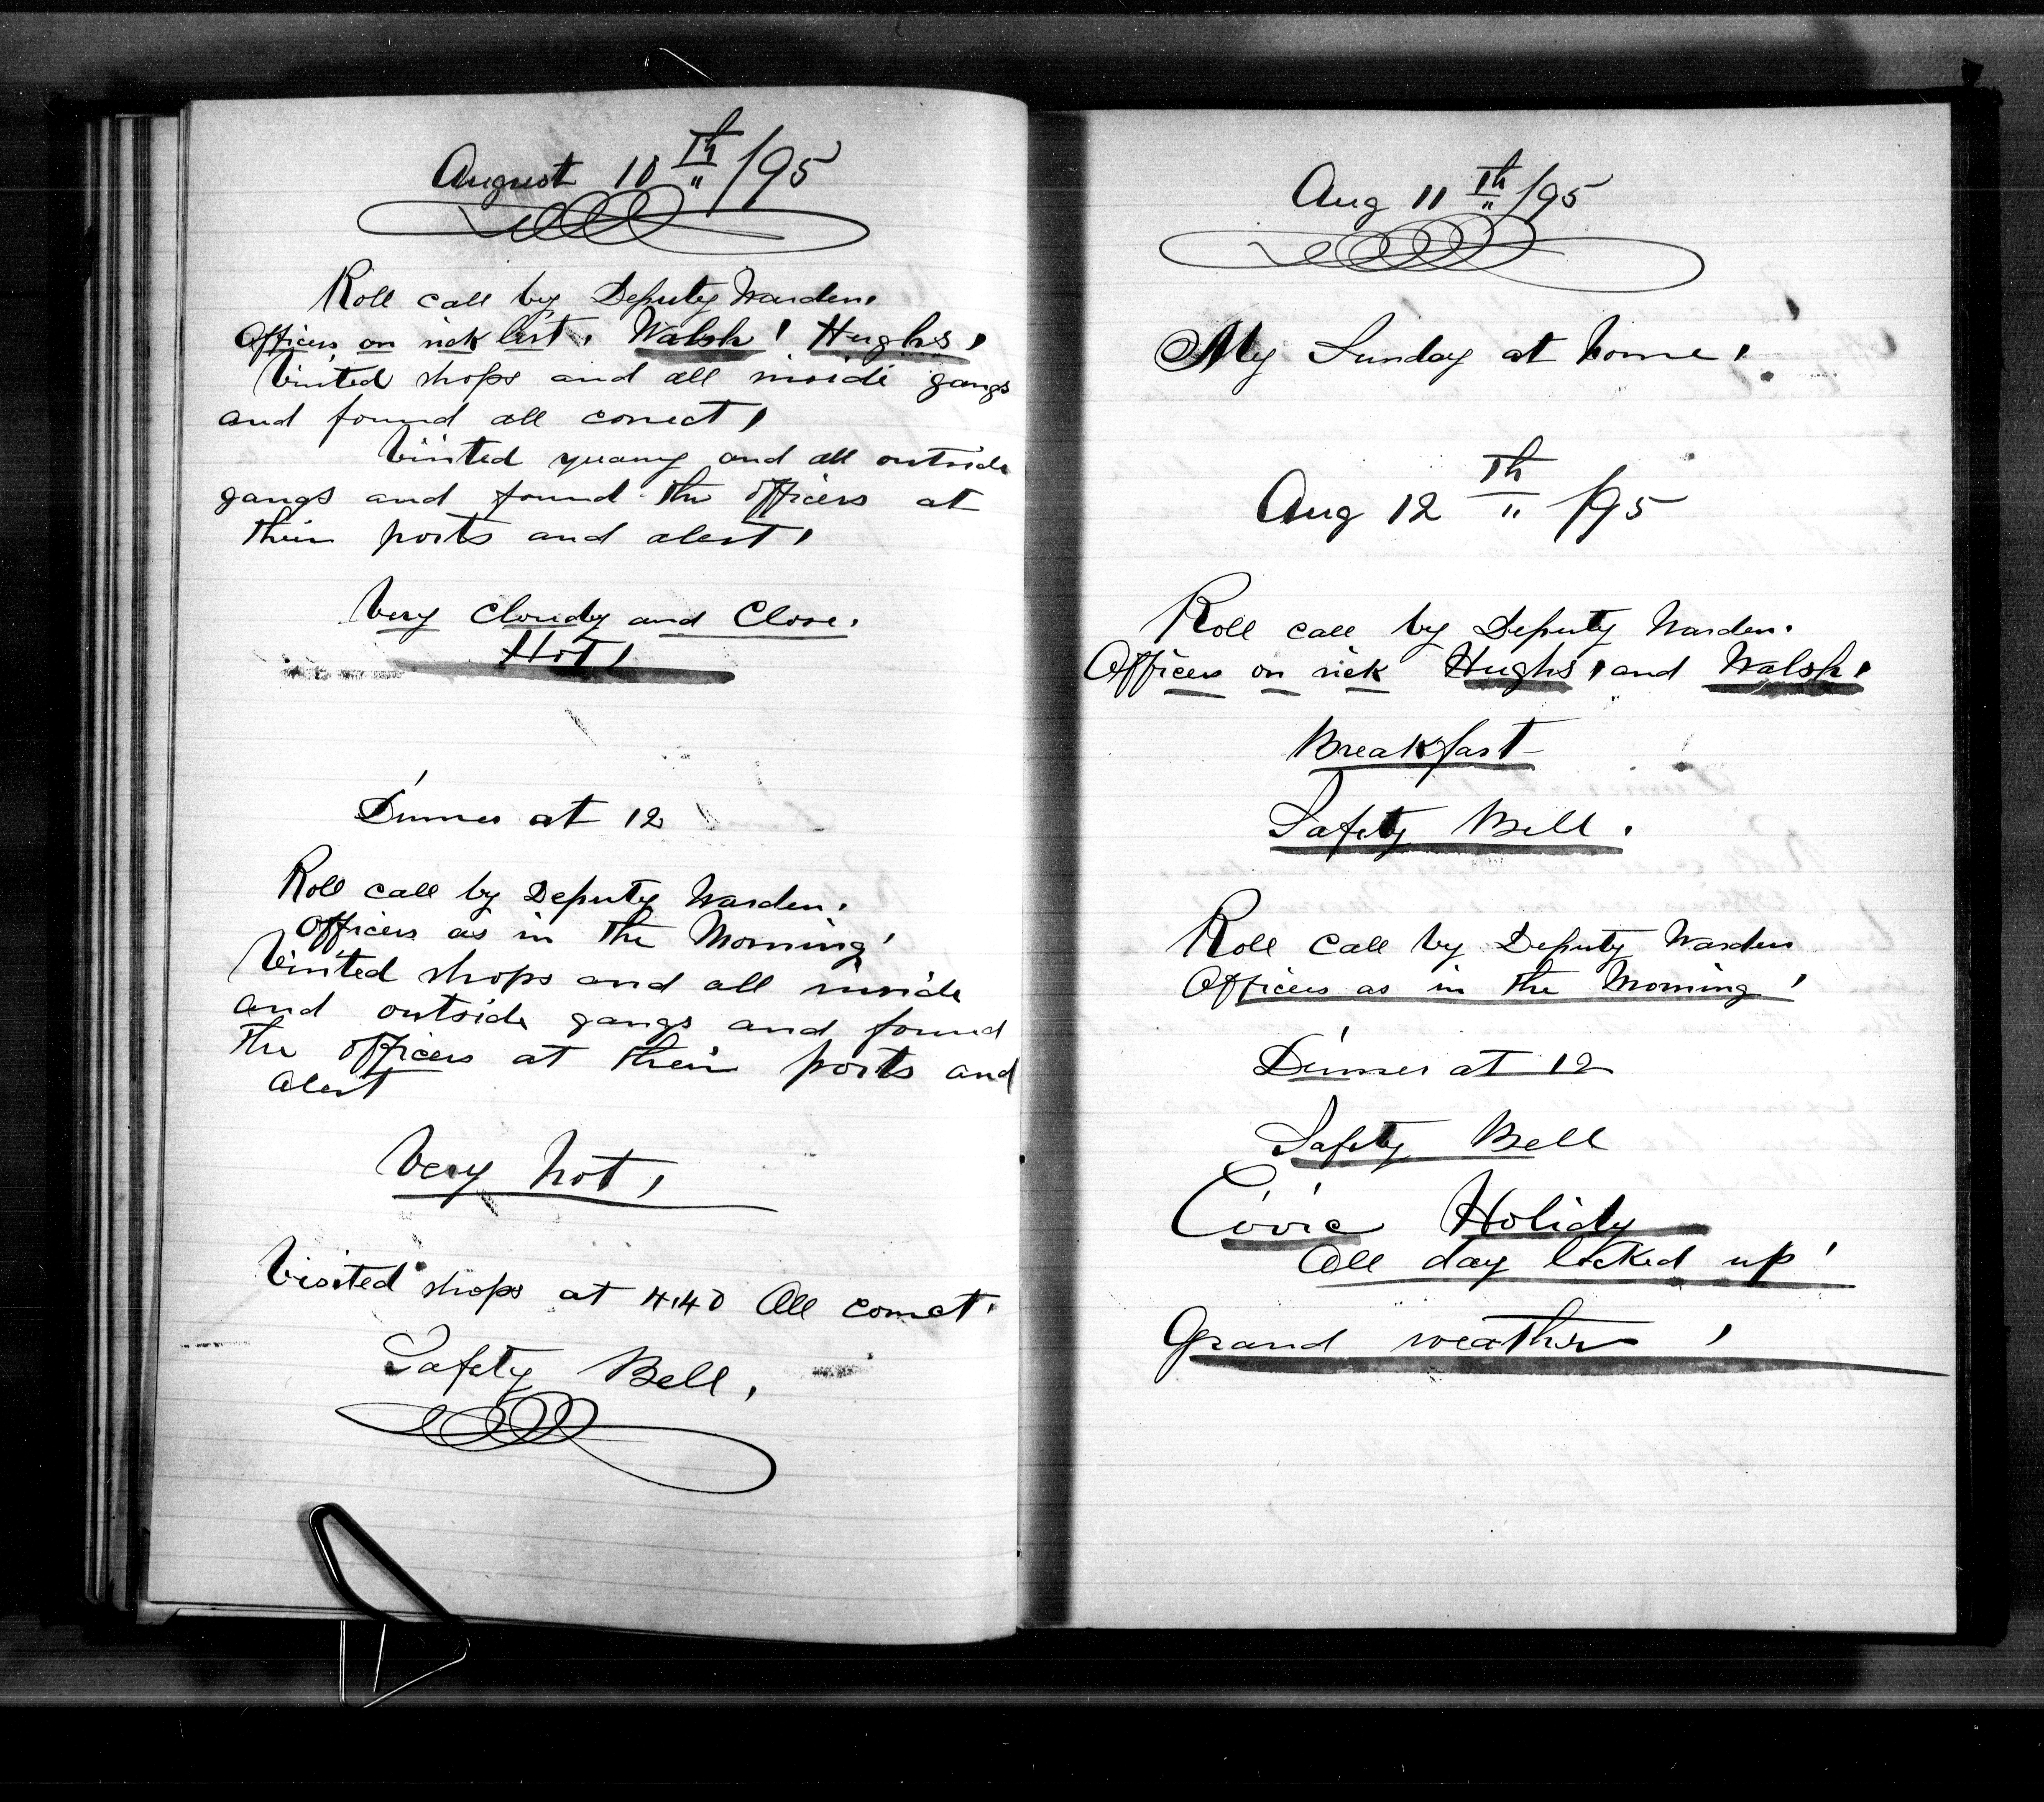 August 10 Th /95
Roll call by Deputy Warden.
Officers on sick list, Walsh, Hughs,
Visited shops and all inside gangs
and found all correct,
Visited quarry and all outside
gangs and found the officers at
their posts and alert,
Very Cloudy and Close.
Hot,
Dinner at 12
Roll call by Deputy Warden.
Officers as in the Morning,
Visited shops and all inside
and outside gangs and found
the officers at their posts and
alert
Very hot,
Visited shops at 4.40 All correct.
Safety Bell,
Aug 11 Th /95
My Sunday at home,
Aug 12 Th /95
Roll call by Deputy Warden.
Officers on sick Hughs, and Walsh,
Breakfast
Safety Bell.
Roll Call by Deputy Warden
Officers as in the Morning,
Dinner at 12
Safety Bell
Civic Holidy
All day locked up,
Grand weather,